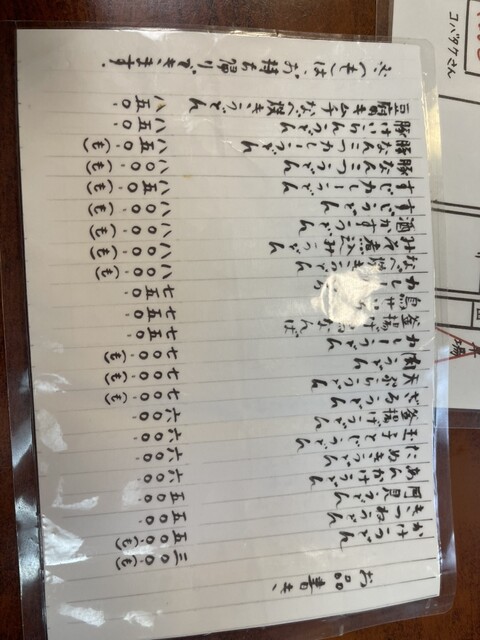 お品書き
かけうどん 三〇〇.(も)
きつねうどん 五〇〇.(も)
月見うどん 五〇〇.
あんかけうどん 五〇〇.
たぬきうどん 六〇〇.
玉子とじうどん 六〇〇.
釜揚げうどん 六〇〇.
ざるうどん 六〇〇.
天ぷらうどん 七〇〇.(も)
肉うどん 七〇〇.(も)
カレーうどん 七〇〇.(も)
釜揚げ なんば 七五〇.
鳥 七五〇.
カレー 七五〇.
なべ焼きうどん 八〇〇.(も)
みそ煮込みうどん 八〇〇.(も)
酒かすうどん 八〇〇.(も)
すじうどん 八〇〇.(も)
すじカレーうどん 八五〇.(も)
豚なんこつうどん 八〇〇.(も)
豚なんこつカレーうどん 八五〇.(も)
豚けいらんうどん 八五〇.
豆腐キムチなべ焼きうどん 八五〇.
お持ち帰りできます.
コバタケさん